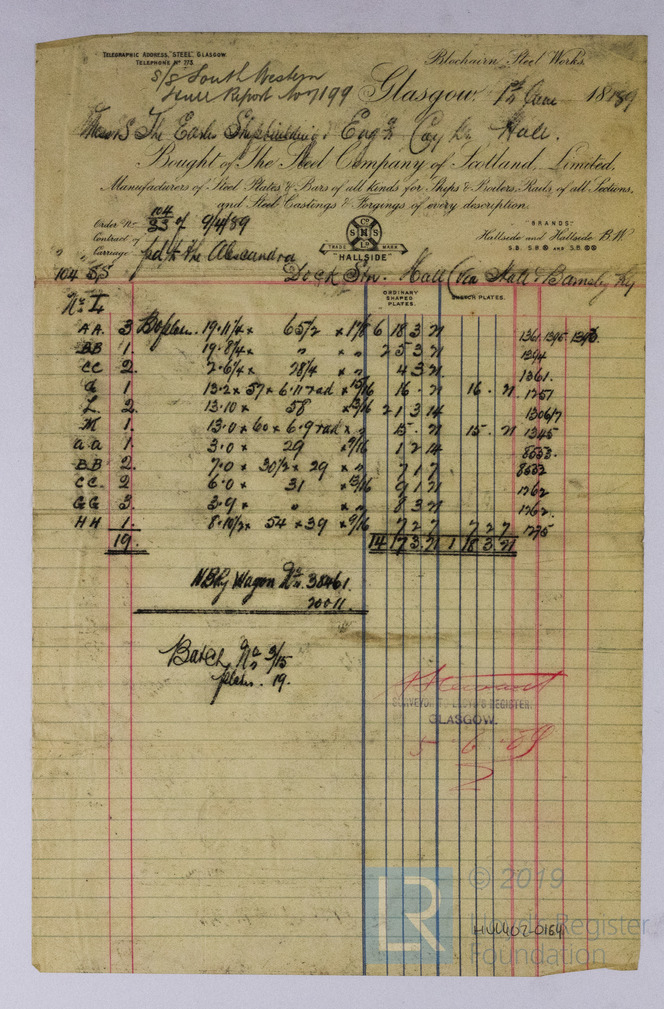 TELEGRAPHIC ADDRESS, "STEEL", GLASGOW.
TELEPHONE Nº 773.
Blochairn Steel Works,
S/S South Western
Hull Report No 7199
Glasgow, 1st June 1889
Messrs The Earles Shipbuilding & Engg Coy Ld Hull.
Bought of The Steel Company of Scotland, Limited,
Manufacturers of Steel Plates & Bars of all kinds for Ships & Boilers, Rails of all Sections,
and Steel Castings & Forgings of every description.
Order No 104/23 of 9/4/89
Contract of
Carriage pd to the Alexandra
TRADE MARK
"HALLSIDE"
"BRANDS"
Hallside and Hallside B.W
104 S/S Dock Stn. Hull (via Hull & Barnsley Ry
ORDINARY SHAPED PLATES. SKETCH PLATES.
AA 3 Bo plates. 19.11¼ × 65½ 6 18 3 21 1361.1395 1393.
BB 1. 19.8¼ × " × " 2 5 3 21 1394
CC 2. 2.6¼ × 28¼ × " 4 3 21 1361.
1 13.2 × 57 × 6.11 rad × 16 . 21 16 . 21 1251
L 2. 13.10 × 58 2 1 3 14 1306/7
M 1. 13.0 × 60 × 6.9 rad × " 15 . 21 15 . 21 1345
aa 1 3.0 × 29 × 9/16 1 2 14
BB 2. 7.0 × 30½ × 29 × " 7 1 7
CC 2. 6.0 × 31 9 1 21 1262
GG 3. 3.9 × " × " 8 3 21 1262.
HH 1. 8.10½ × 54 × 39 × 9/16 7 2 7 7 2 7 1275
19. 14 17 3 21 1 18 3 21
NBRy Wagon No. 38461.
20011.
Batch No 9/15
plates. 19.
SURVEYOR TO LLOYD'S REGISTER.
GLASGOW.
5 . 6 . 89
LR
© 2019
Lloyd's Register
Foundation
HUL402-0164